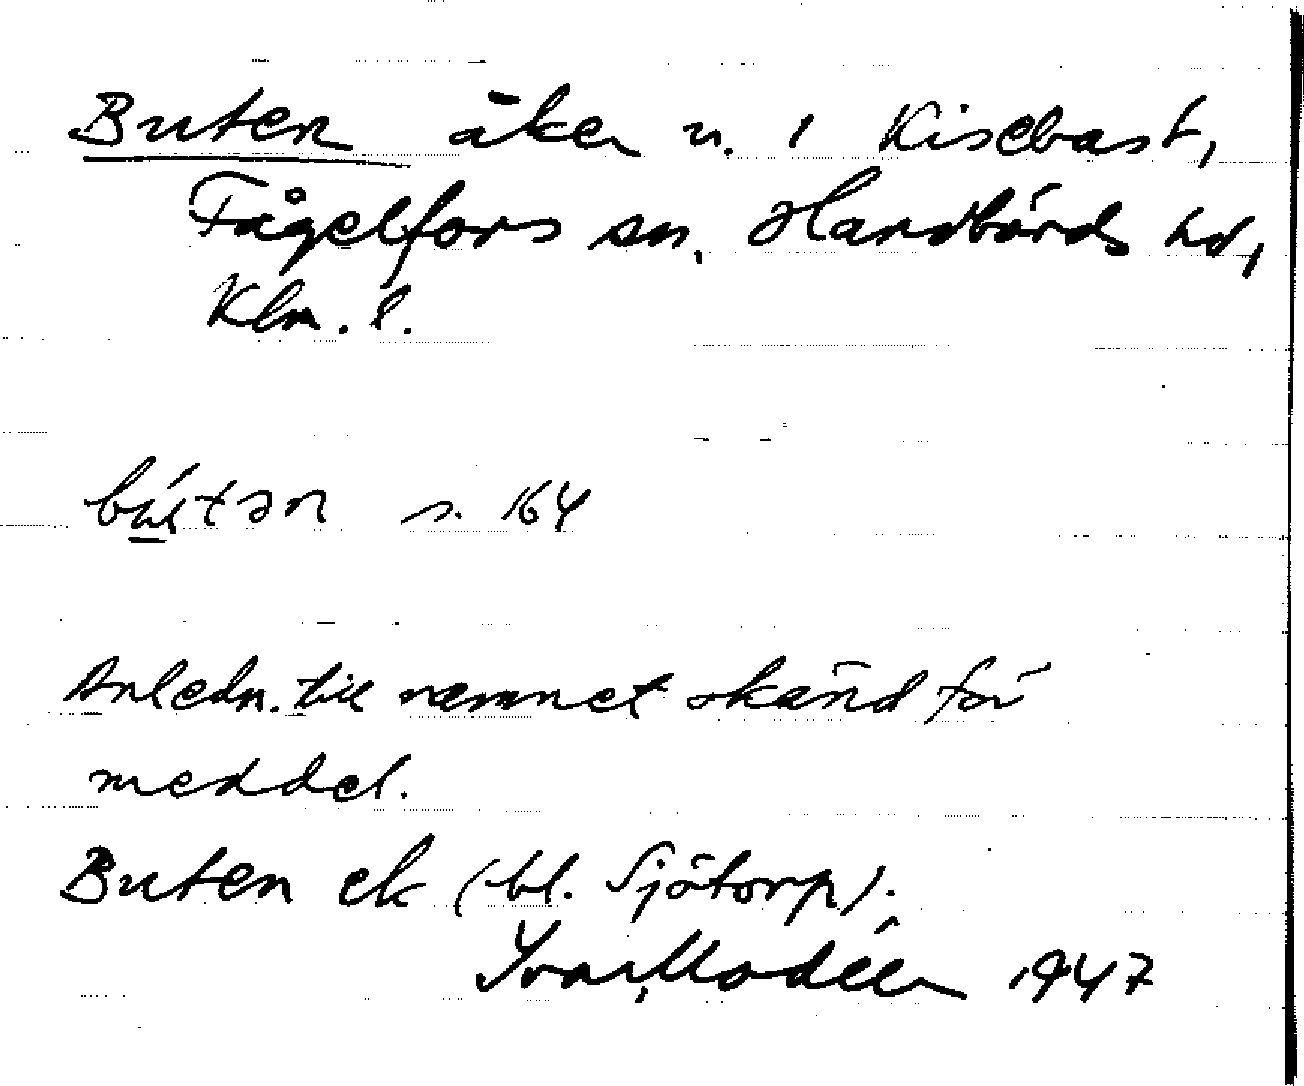 Buten åker n. 1 Kisebast,
Fågelfors sn, Handbörds hd,
Klm. l.
bu̲tən s. 164
Anledn. till namnet okänd för
meddel.
Buten ek (bl. Sjötorp).
Ivar Modéer 1947